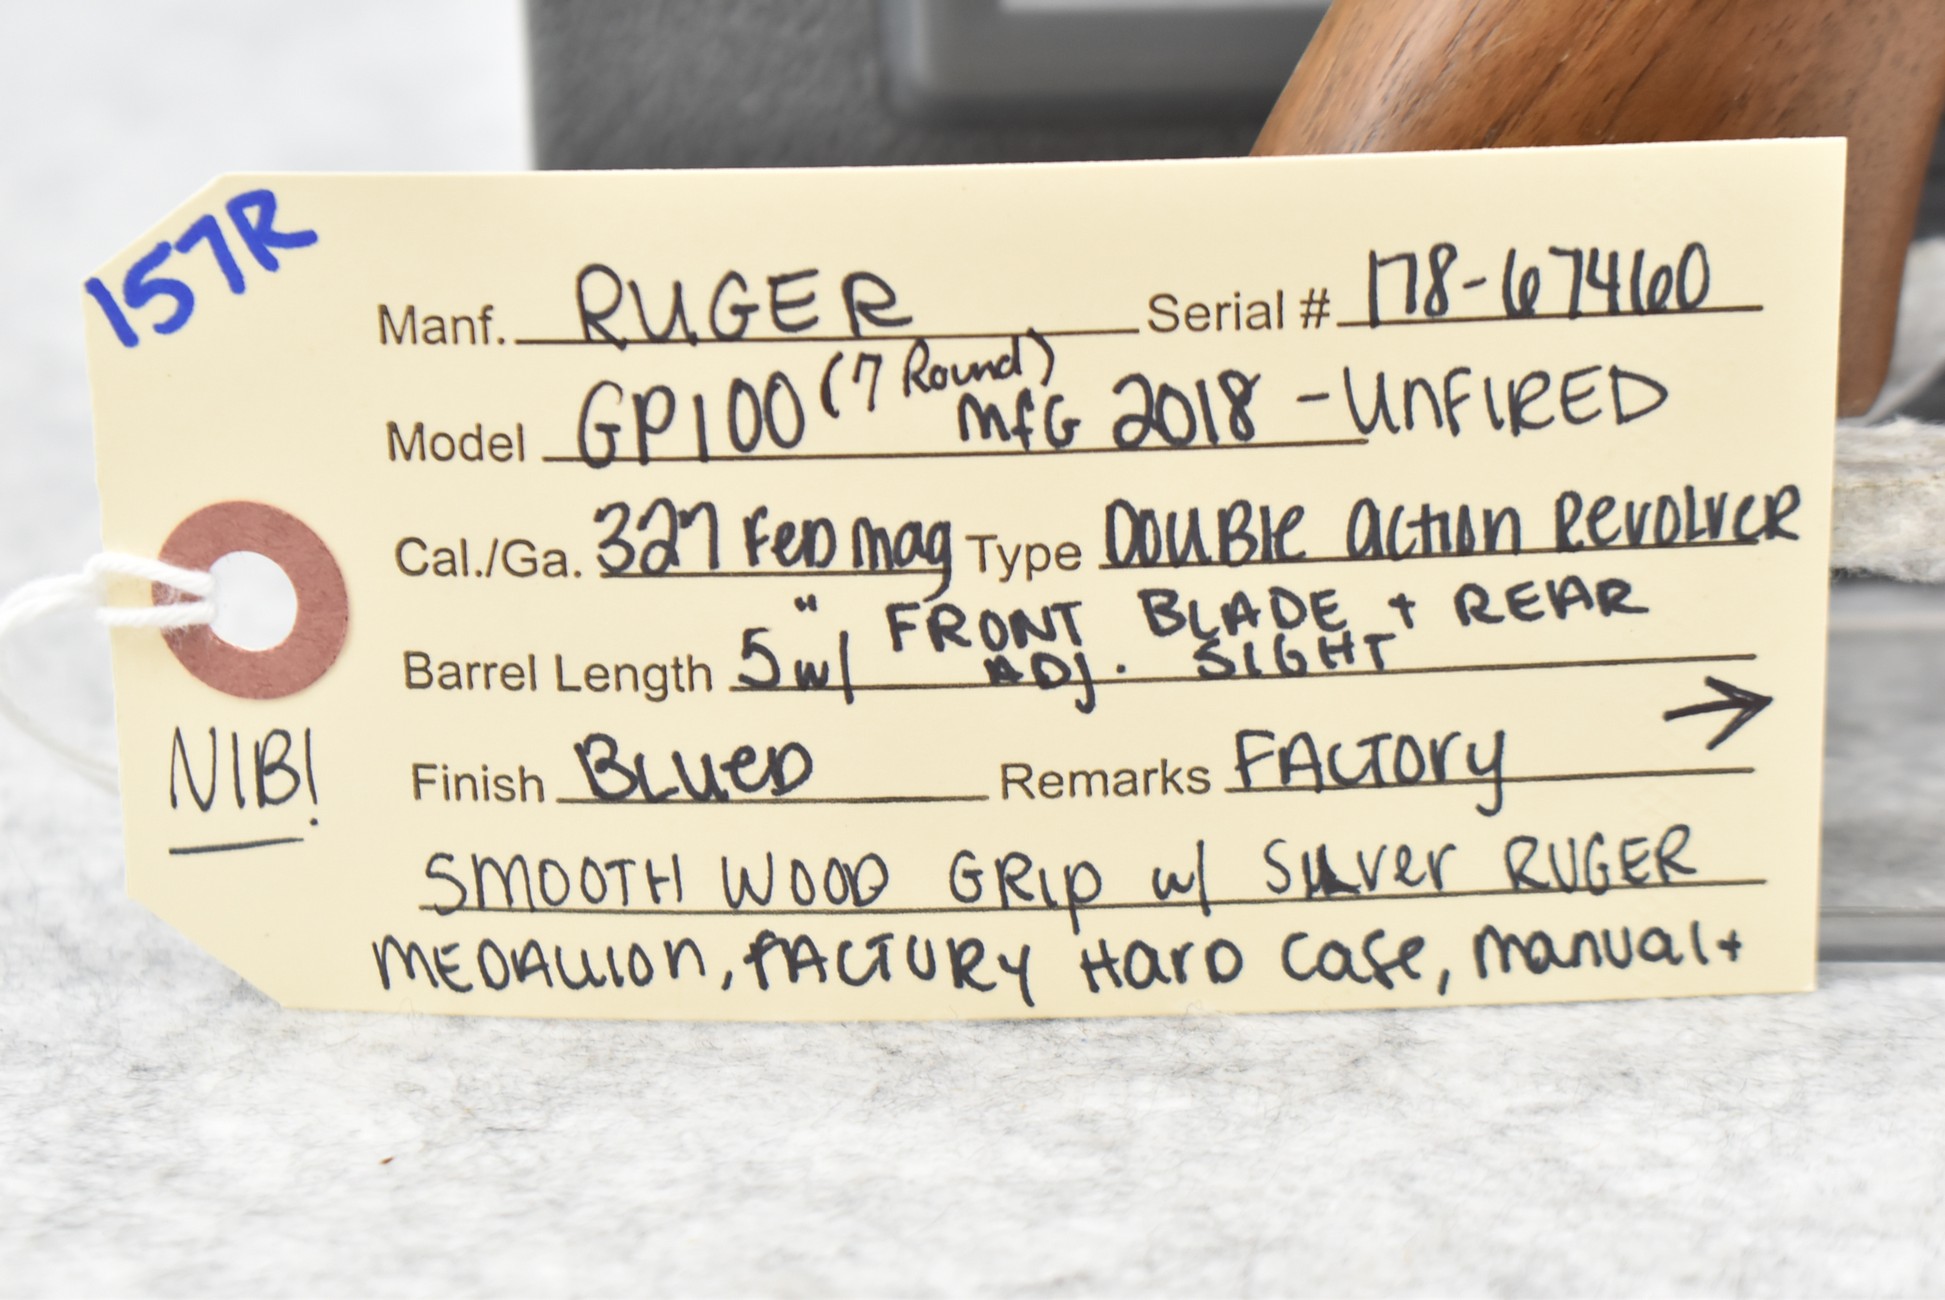 157R
Manf. RUGER Serial # 178-67460
Model GP100 (7 Round) MFG 2018 - UNFIRED
Cal./Ga. 327 FED mag Type DOUBLE ACTION REVOLVER
Barrel Length 5" w/ FRONT BLADE + REAR
ADJ. SIGHT
→
NIB!
Finish BLUED Remarks FACTORY
SMOOTH WOOD GRIP w/ SILVER RUGER
MEDALLION, FACTORY HARD CASE, MANUAL +